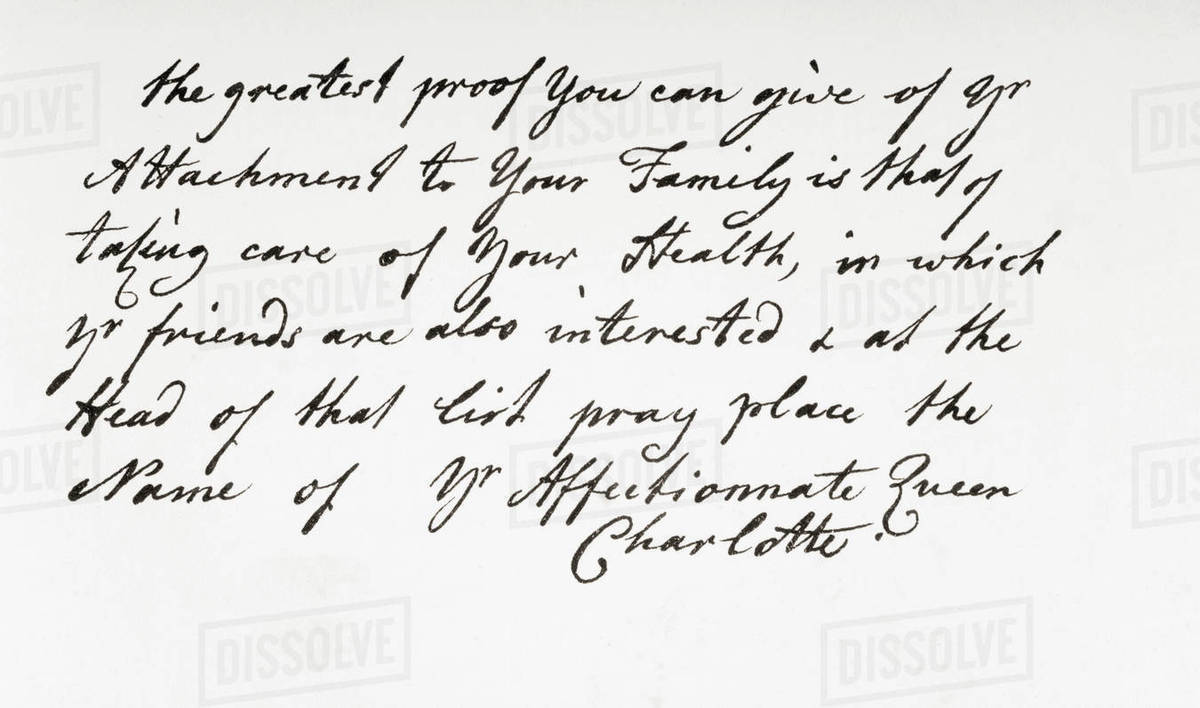 the greatest proof You can give of Yr
Attachment to Your Family is that of
taking care of Your Health, in which
yr friends are also interested & at the
Head of that list pray place the
Name of Yr Affectionnate Queen
Charlotte.
DISSOLVE